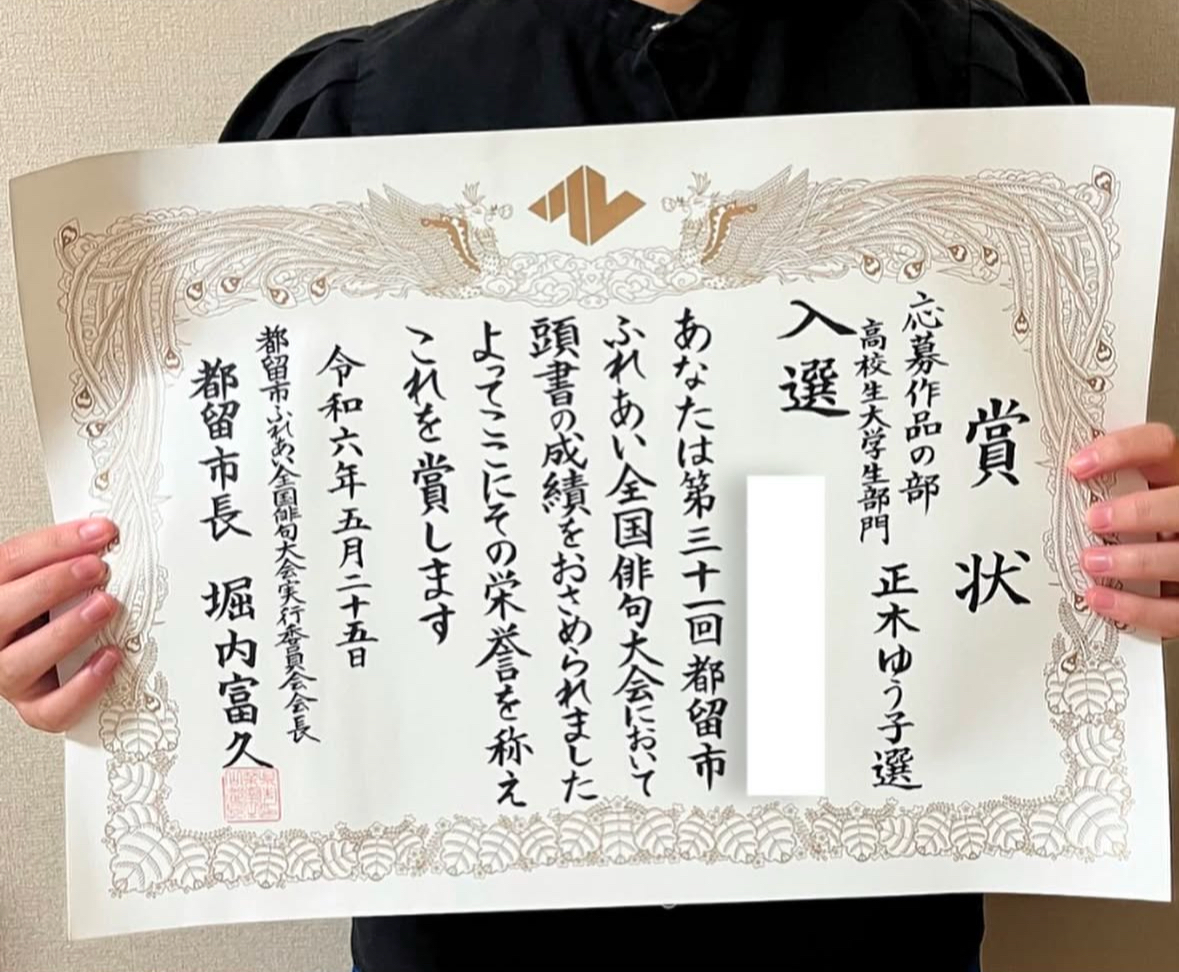 賞状
応募作品の部
高校生大学生部門 正木ゆう子選
入選
あなたは第三十一回都留市
ふれあい全国俳句大会において
頭書の成績をおさめられました
よってここにその栄誉を称え
これを賞します
令和六年五月二十五日
都留市ふれあい全国俳句大会実行委員会会長
都留市長 堀内富久